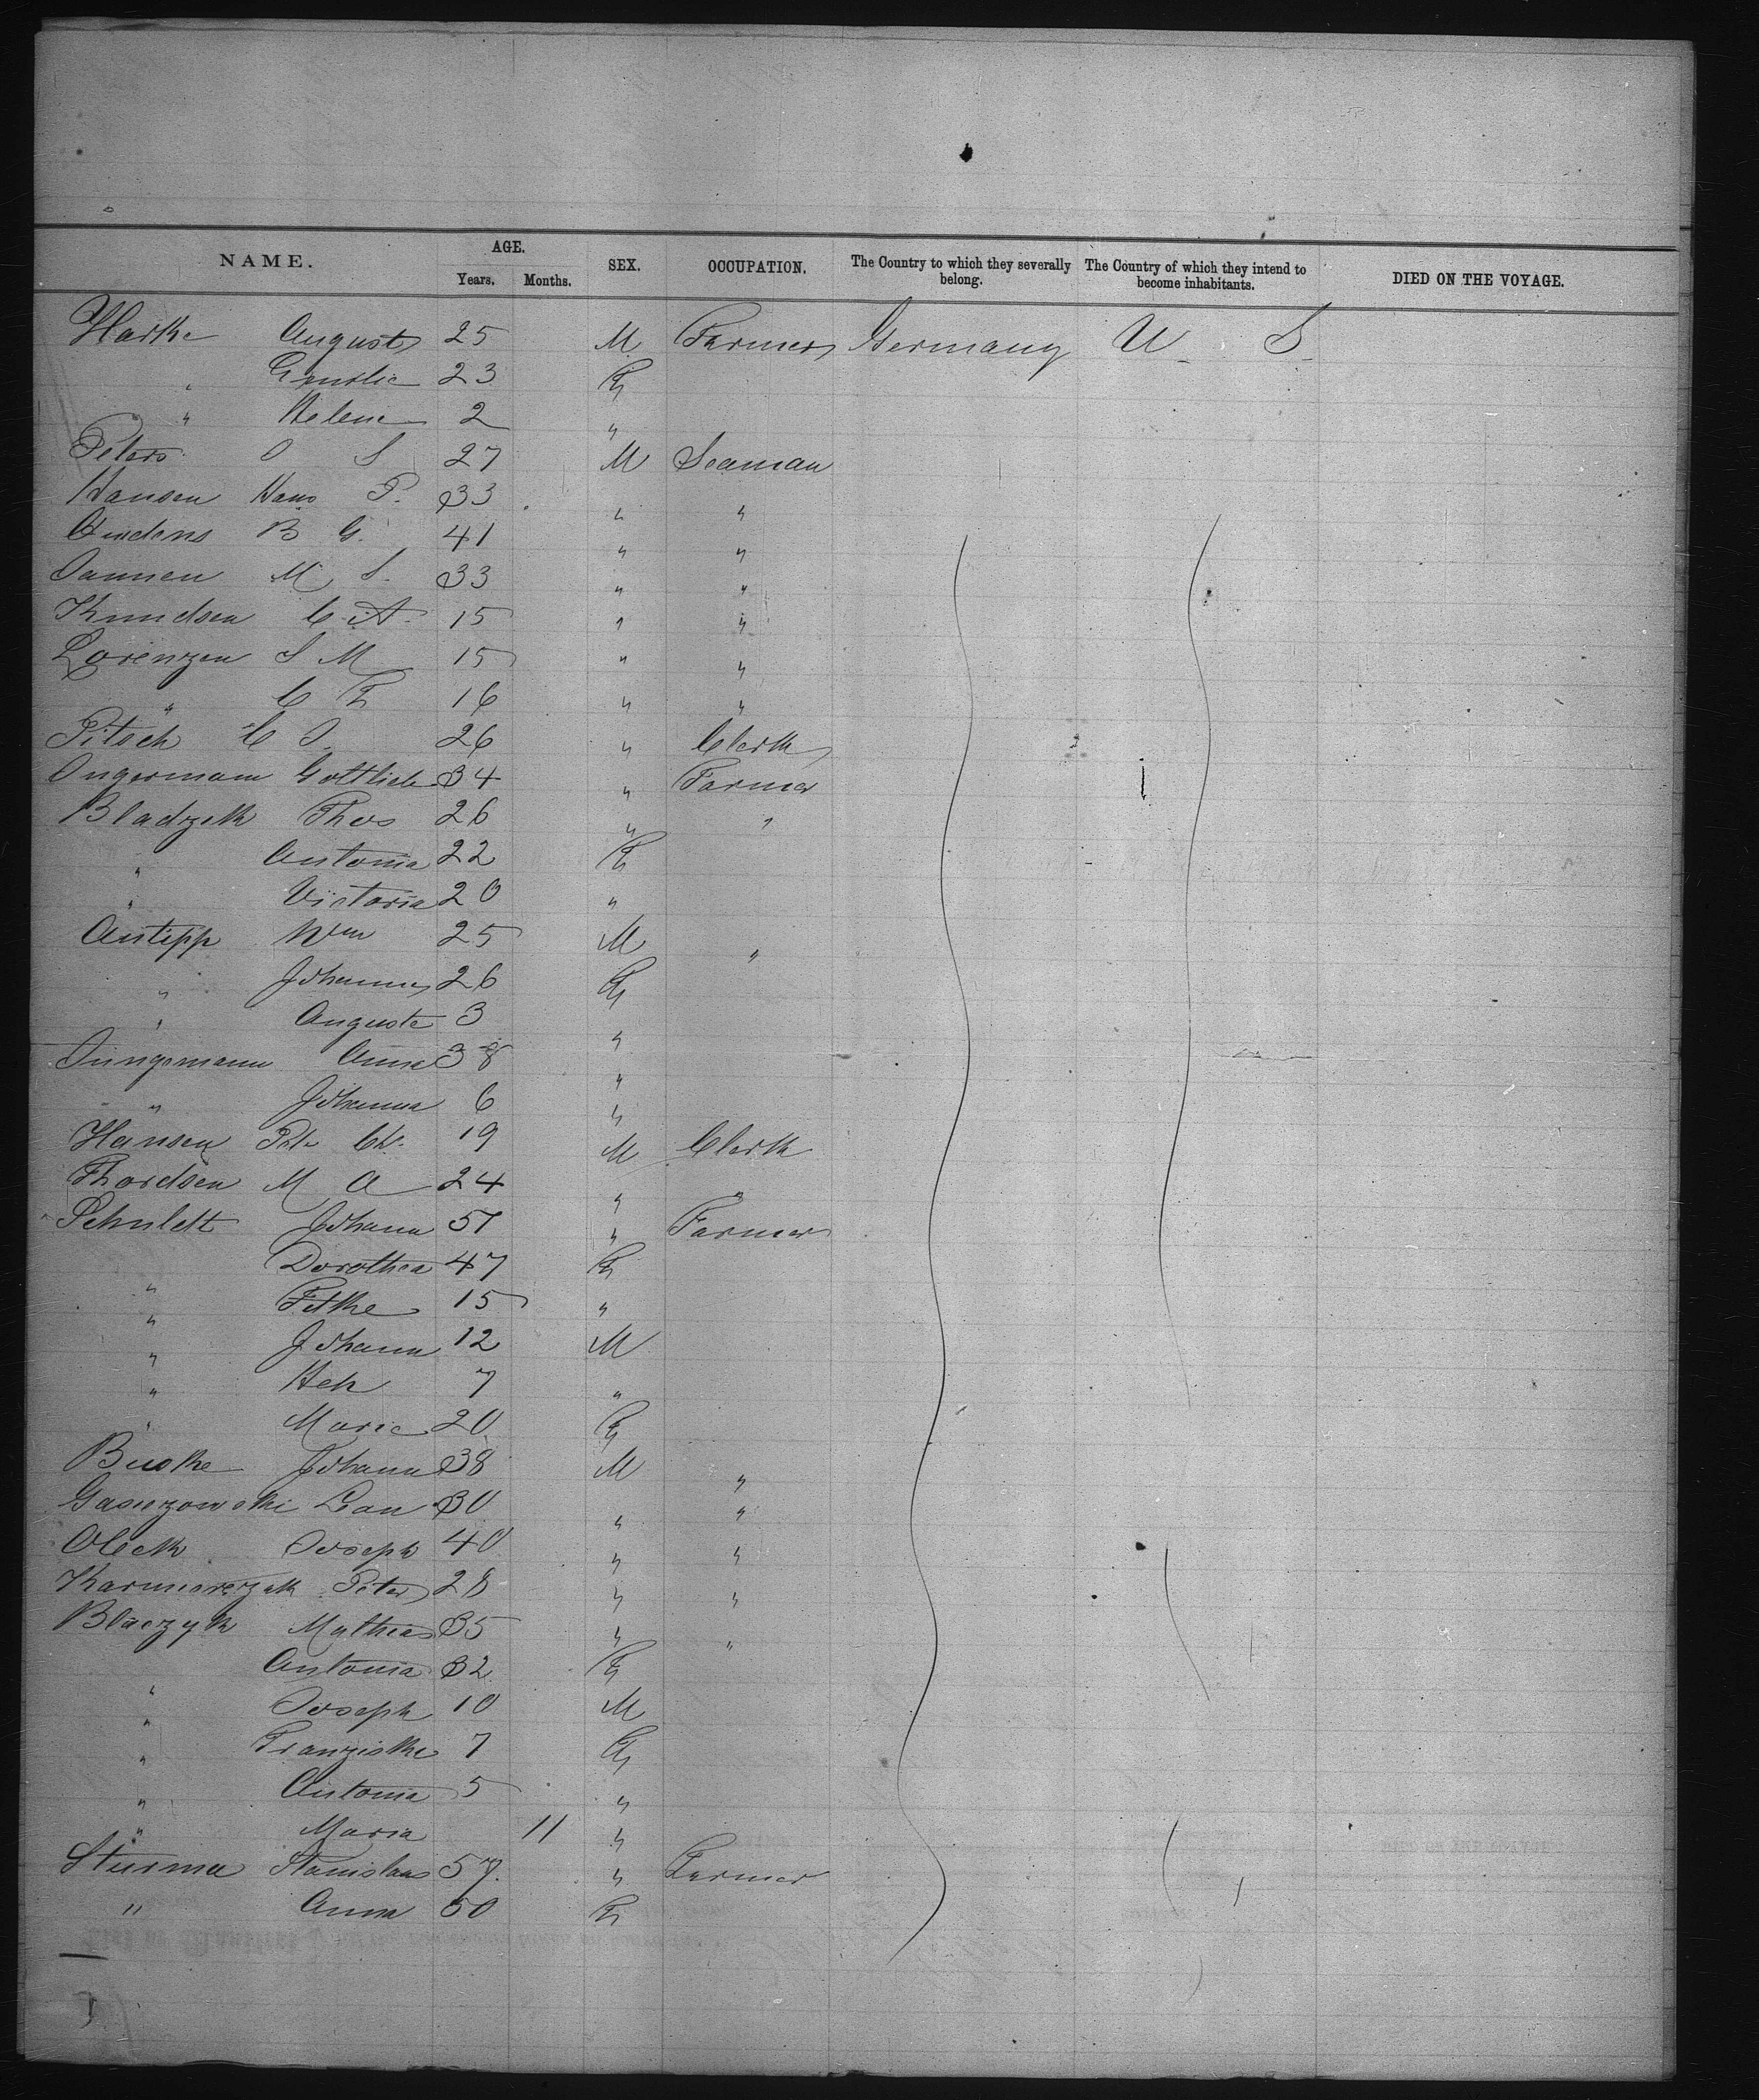 NAME. AGE. SEX. OCCUPATION. The Country to which they severally belong. The Country of which they intend to become inhabitants. DIED ON THE VOYAGE.
Years. Months.
Harke August 25 M Farmer Germany U S
" Emilie 23 F
" Helene 2 "
Peters J S 27 M Seaman
Hansen Hans P. 33 " "
B G. 41 " "
Jannen M S. 33 " "
Knudsen C. A. 15 " "
Lorenzen S M 15 " "
" C F 16 " "
Pitsch C J. 26 " Clerk
Ungermann Gottlieb 34 " Farmer
Bladzek Thos 26 " "
" Antonia 22 F
" Victoria 20 "
Antipp Wm 25 M "
" Johanna 26 F
" Auguste 3 "
Jungemann Anna 38 "
" Johanna 6 "
Hansen Pete Ch. 19 M Clerk
Thordsen M A 24 " "
Schuldt Johann 51 " Farmer
" Dorothea 47 F
" 15 "
" Johann 12 M
" Hch 7 "
" Marie 20 F
Buske Johann 38 M "
Leon 30 " "
Oleck Joseph 40 " "
Karmierczak Peter 28 " "
Blaczyk Mathias 35 " "
" Antonia 32 F
" Joseph 10 M
" Franziska 7 F
" Antonia 5 "
" Maria 11 "
Sturma Stanislaus 57. " Farmer
" Anna 50 F